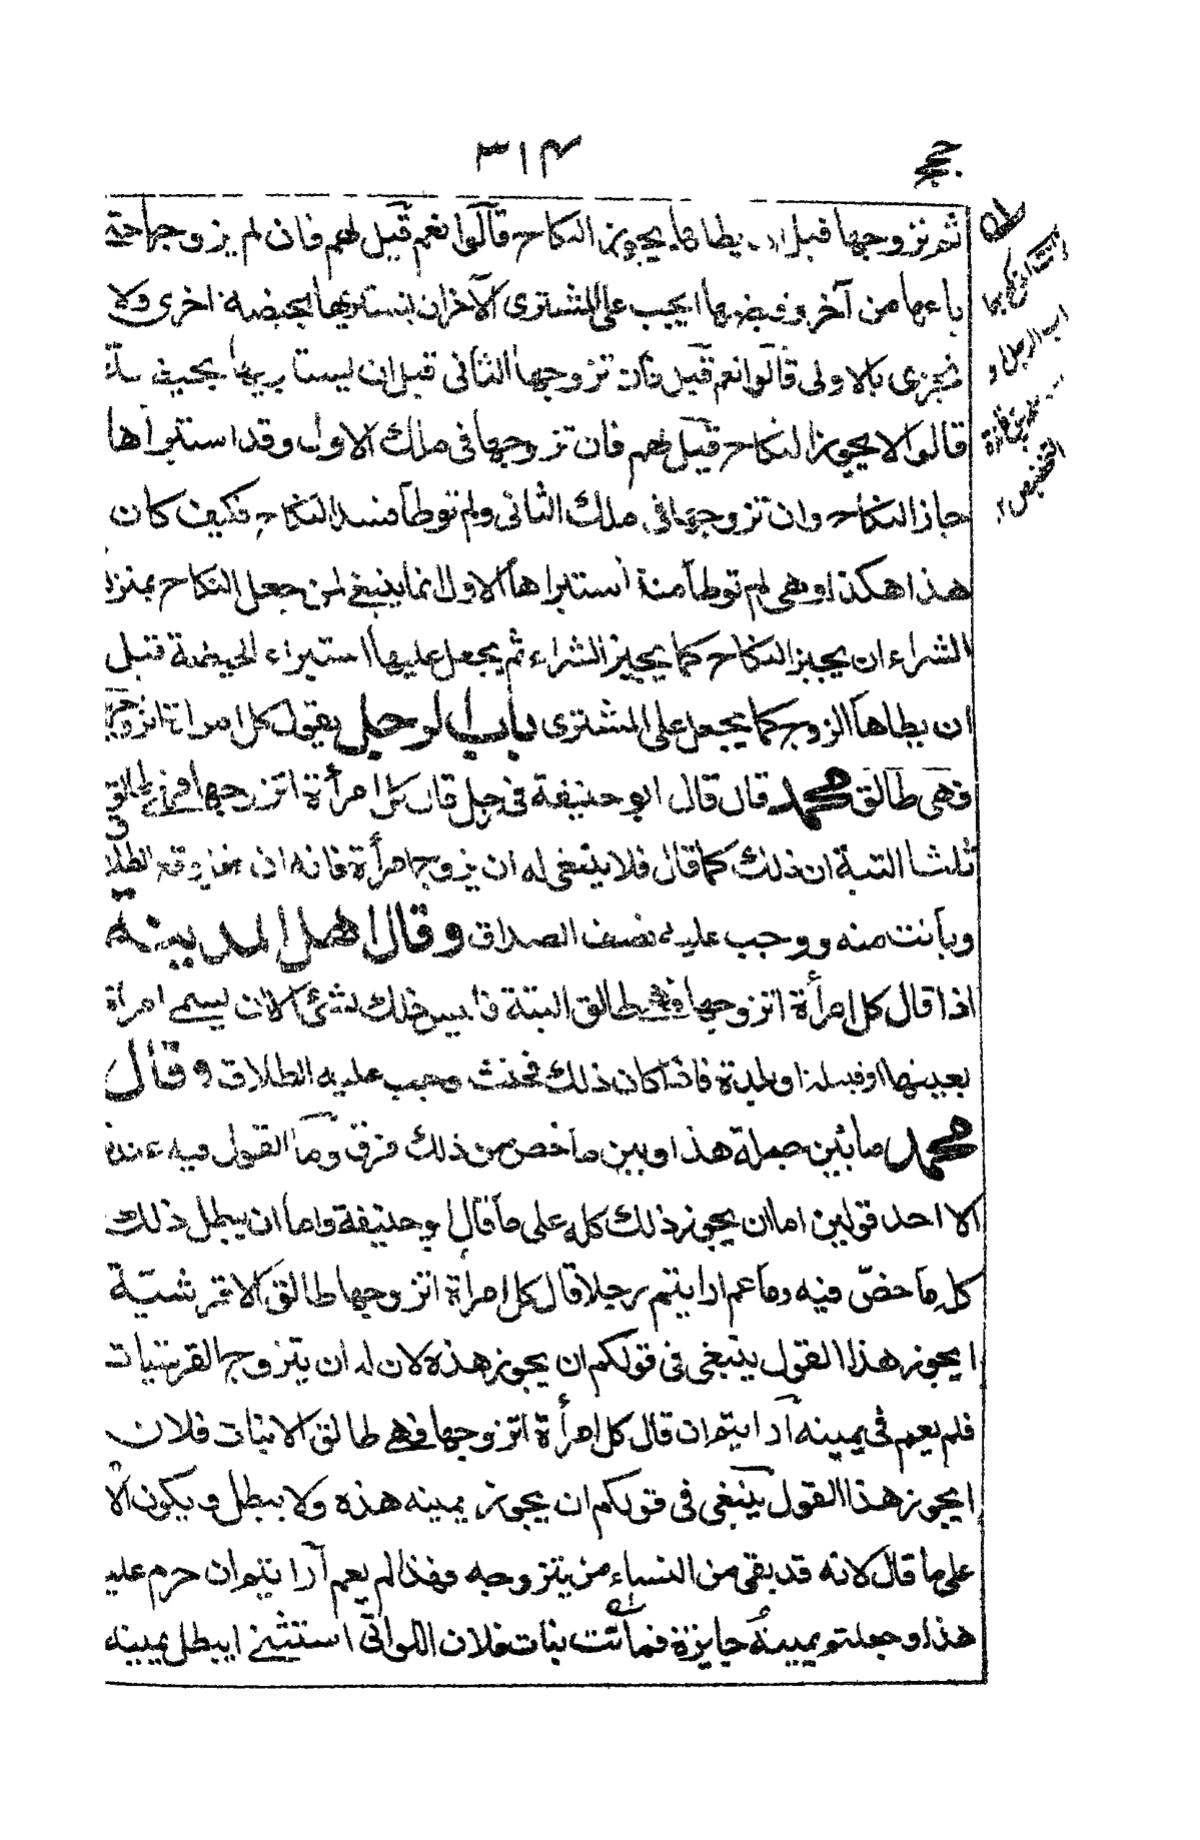 ٣١٤
حجج
ثم تزوجها قبل ان يطاها يجوز النكاح قالوا نعم قيل لهم فان لم يزوجها حتى
باعها من آخر وقبضها ايجب على المشترى الآخر ان يستبريها بحيضة اخرى ولا
تجزى بالاولى قالوا نعم قيل فان تزوجها الثانى قبل ان يستبريها بحيضة
قالوا لا يجوز النكاح قيل لهم فان تزوجها فى ملك الاول وقد استبرأها
جاز النكاح وان تزوجها فى ملك الثانى ولم توطأ فسد النكاح فكيف كان
هذا هكذا وهى لم توطأ منذ استبراها الاول انما ينبغى لمن جعل النكاح بمنزلة
الشراء ان يجيز النكاح كما يجيز الشراء ثم يجعل عليها استبراء الحيضة قبل
ان يطاها الزوج كما يجعل على المشترى باب الرجل يقول كل امراة اتزوجها
فهى طالق محمد قال قال ابو حنيفة فى رجل قال كل امرأة اتزوجها فهى طالق
ثلثا البتة ان ذلك كما قال فلا ينبغى له ان يزوج امرأة فانه اذا فعل وقع الطلاق
وبانت منه ووجب عليه نصف الصداق وقال اهل المدينة
اذا قال كل امرأة اتزوجها فهى طالق البتة فليس ذلك بشئ الا ان يسمى امراة
بعينها او قبيلة او بلدة فاذا كان ذلك فحنث وجب عليه الطلاق وقال
محمد ما بين جملة هذا وبين ما خص من ذلك فرق وما القول فيه عندنا
الا احد قولين اما ان يجوز ذلك كله على ما قال ابو حنيفة واما ان يبطل ذلك
كله ما خصّ فيه وما عم ارايتم رجلا قال كل امرأة اتزوجها طالق الا قرشيّة
ايجوز هذا القول ينبغى فى قولكم ان يجوز هذه لان له ان يتزوج القرشيات
فلم يعم فى يمينه أرايتم ان قال كل امرأة اتزوجها فهى طالق الا بنات فلان
ايجوز هذا القول ينبغى فى قولكم ان يجوز يمينه هذه ولا يبطل ويكون الامر
على ما قال لانه قد بقى من النساء من يتزوجه فهذا لم يعم أرايتم ان حرم عليه
هذا وجعلتم يمينه جايزة فماتت بنات فلان اللواتى استثنى ايبطل يمينه